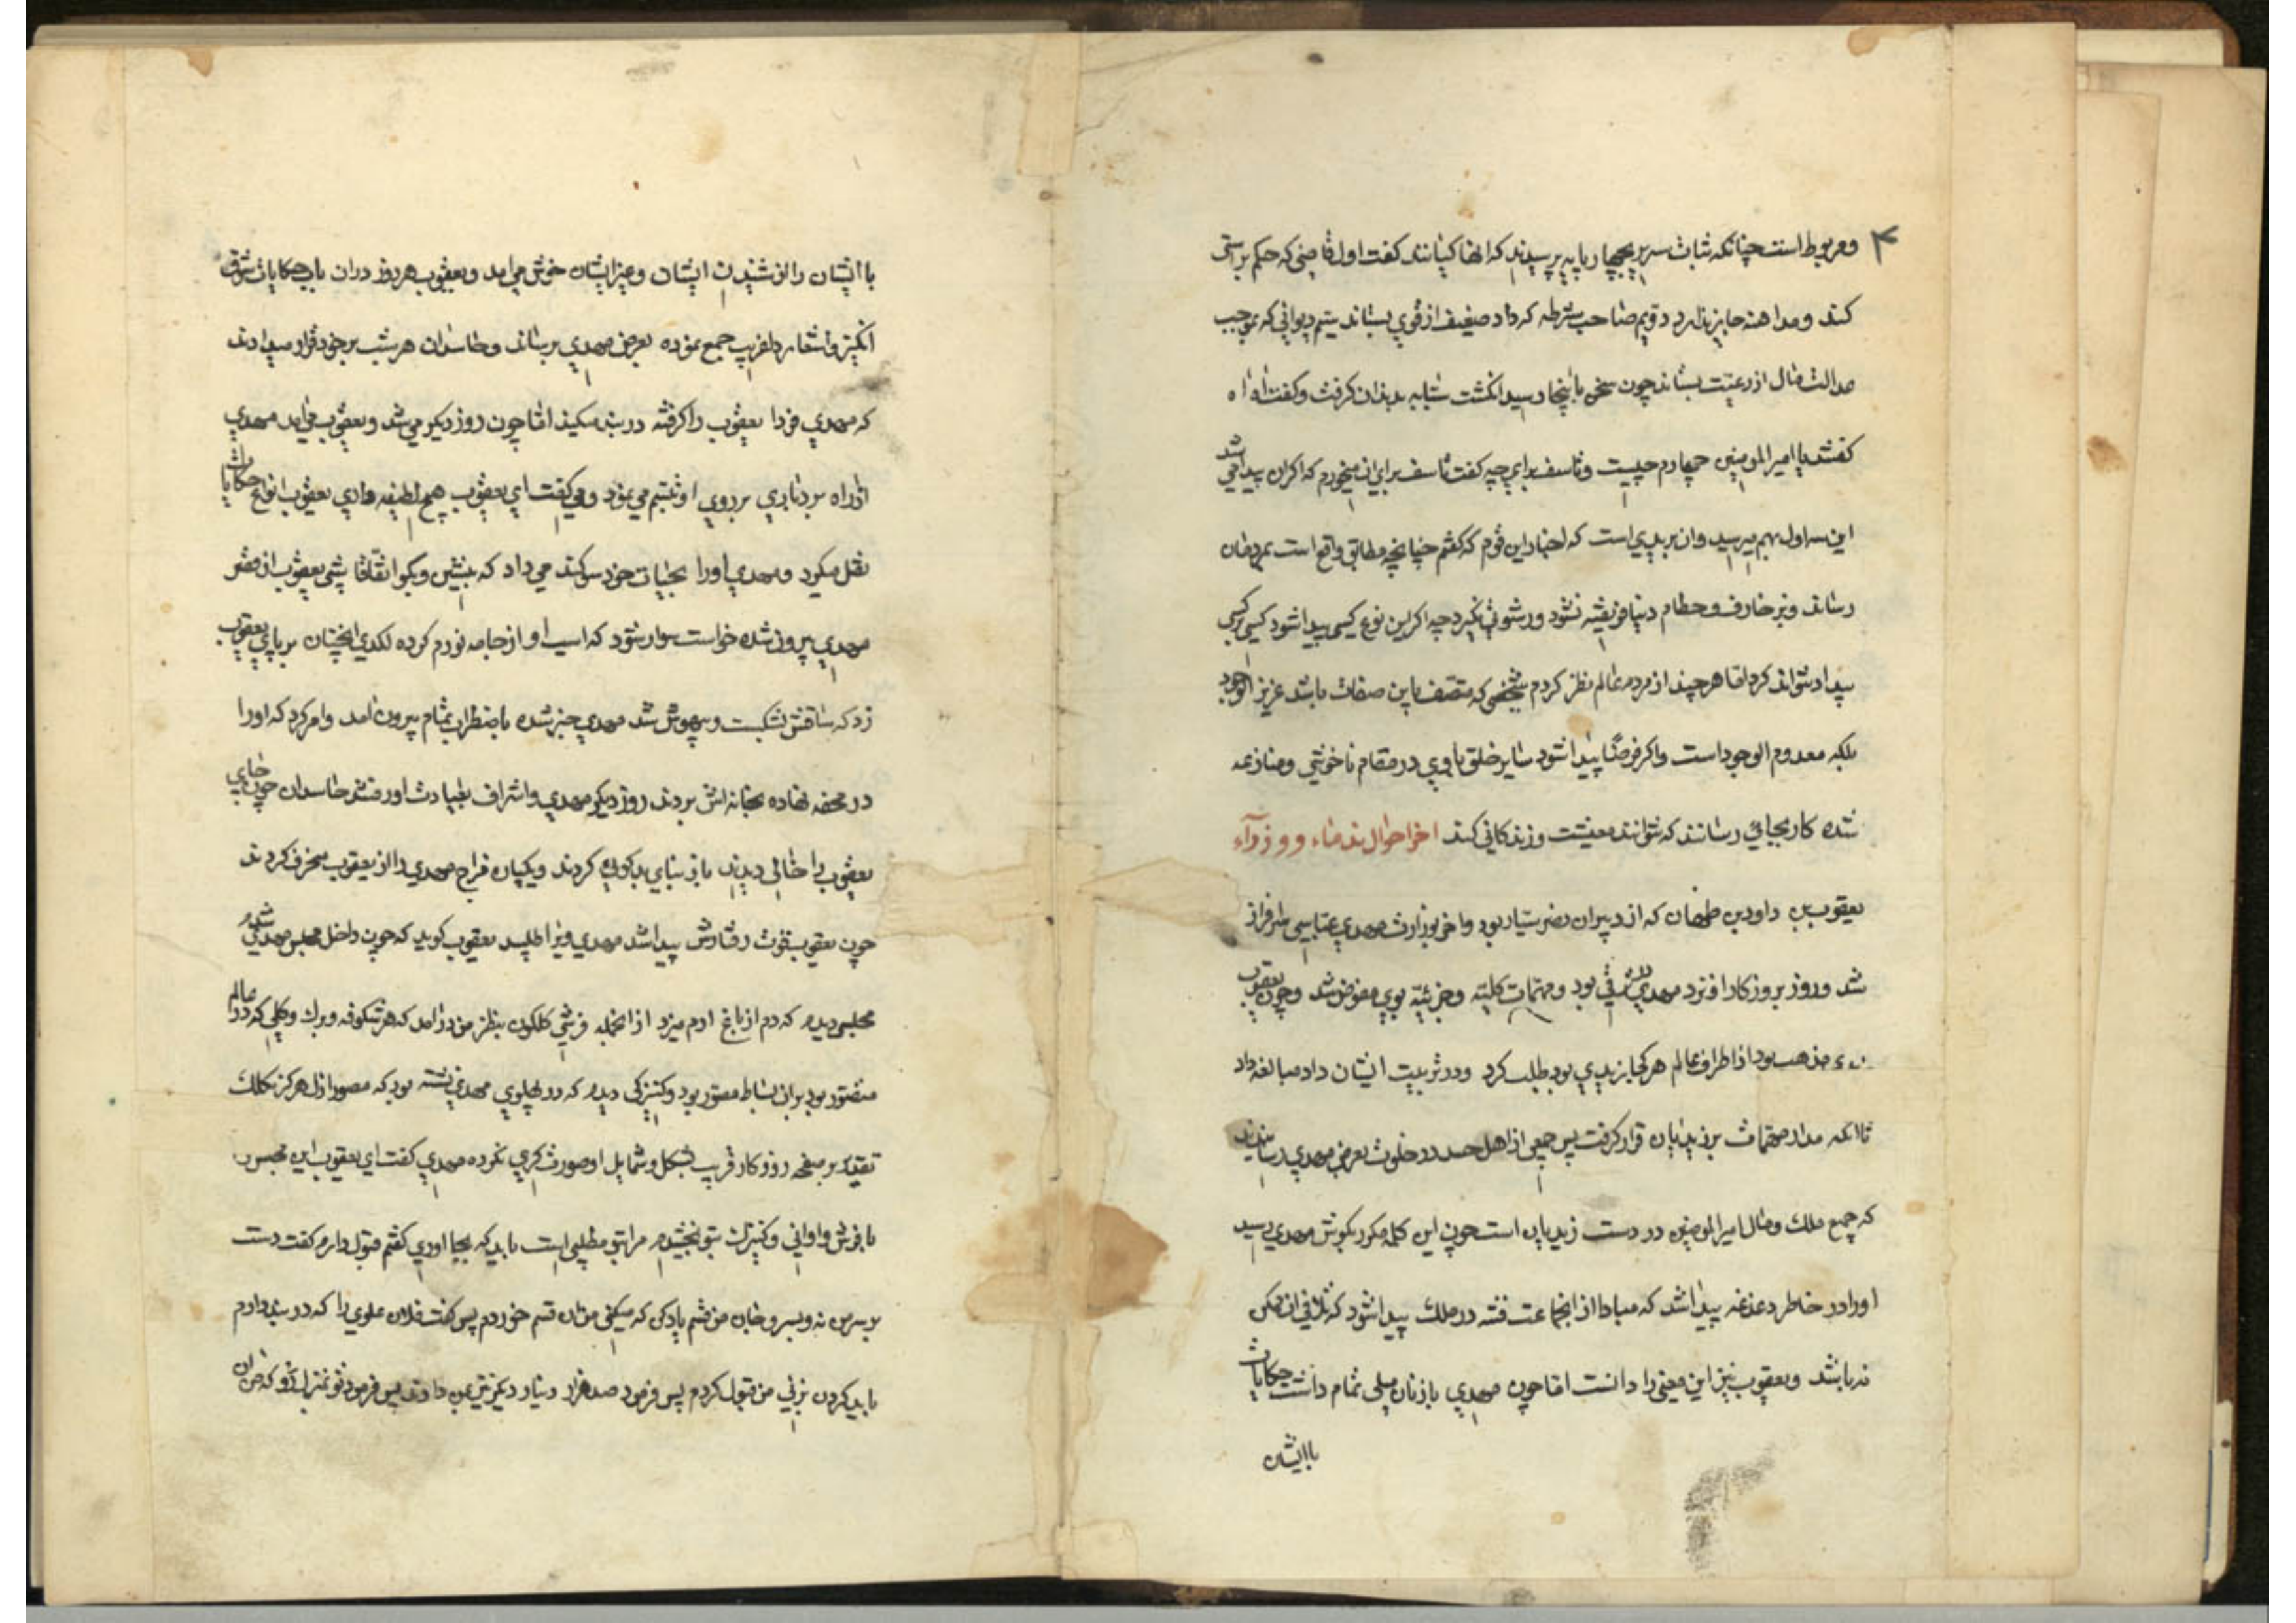 ۴ و مربوط است چنانکه ثبات سریر بچهارپایه پرسیدند که انها کیانند کفت اول قاضی که حکم براستی
کند و مداهنه جایز ندارد دویم صاحب شرطه که داد ضعیف از قوی بستاند سیم دیوانی که بموجب
عدالت مال از رعیت بستاند چون سخن باینجا رسید انکشت سبابه بدندان کرفت و کفت اه اه
کفتند یا امیر المومنین چهارم چیست و تاسف برای چه کفت تاسف برای ان میخورم که اکر ان پیدا می شد
این سه اول بهم میرسید وان بریدی است که اخبار این قوم که کفتم چنانچه مطابق واقع است بمن
رساند و بزخارف و حطام دنیا فریفته نشود و رشوت نکیرد چه اکر این نوع کسی پیدا شود کسی بر کسی
بیداد نتواند کرد اما هرچند از مردم عالم نظر کردم شخصی که متصف باین صفات باشد عزیز الوجود
بلکه معدوم الوجود است واکر فرضاً پیدا شود سایر خلق با وی در مقام ناخوشی و منازعه
شده کار بجائی رسانند که نتوانند معیشت و زندکانی کند اخر احوال ندماء و وزرآء
یعقوب بن داود بن طهمان که از دبیران نصر سیار بود واخر بوزارت مهدی عباسی سرافراز
شد و روز بروز کار او نزد مهدی در ترقی بود و مهمات کلیه و جزئیه بوی مفوض شد و چون یعقوب
مذهب بود از اطراف عالم هرکجا زیدی بود طلب کرد و در تربیت ایشان داد مبالغه داد
تا انکه مدار مهمات بر زیدیان قرار کرفت پس جمعی از اهل حسد در خلوت بعرض مهدی رسانیدند
که جمیع ملک و مال امیر المومنین در دست زیدیان است چون این کلمه مکرر بکوش مهدی رسید
او را در خاطر دغدغه پیدا شد که مبادا از انجماعت فتنه در ملک پیدا شود که تلافی ان ممکن
نه باشد و یعقوب نیز این معنی را دانست اما چون مهدی با زنان میلی تمام داشت حکایات
با ایشان
با ایشان را و شنیدن ایشان و غیر ایشان خوش می امد و یعقوب هر روز دران باب حکایات شوق
انکیز و اشعار دلفریب جمع نموده بعرض مهدی برساند و حاسدان هر شب بر خود قرار میدادند
که مهدی فردا یعقوب را کرفته در بند میکند اما چون روز دیکر می شد و یعقوب می امد مهدی
از راه بردباری بر روی او تبسم می نمود و می کفت ای یعقوب هیچ لطیفه داری یعقوب انواع حکایات
نقل میکرد و مهدی او را بحیات خود سوکند می داد که بنشین و بکو اتفاقا شبی یعقوب از قصر
مهدی بیرون شده خواست سوار شود که اسب او از جامه نو رم کرده لکدی انچنان بر پای یعقوب
زد که ساقش شکست و بیهوش شد مهدی خبر شده باضطراب تمام بیرون امد و امر کرد که او را
در محفه نهاده بخانه اش بردند روز دیکر مهدی و اشراف بعیادت او رفتند حاسدان چون جای
یعقوب را خالی دیدند باز بنای بدکوئی کردند و یکباره مزاج مهدی را از یعقوب منحرف کردند
چون یعقوب قوت رفتارش پیدا شد مهدی ویرا طلبید یعقوب کوید که چون داخل مجلس مهدی شدم
مجلسی دیدم که دم از باغ ارم میزد از انجمله فرشی کلکون بنظر من درامد که هر شکوفه و برک و کلی که در عالم
متصور بود بران بساط مصور بود و کنیزکی دیدم که در پهلوی مهدی نشسته بود که مصور ازل هرکز بکلک
تقدیر بر صفحه روزکار قریب بشکل و شمایل او صورت کری نکرده مهدی کفت ای یعقوب این مجلس
با فرش و اوانی و کنیزک بتو بخشیدم مرا بتو مطلبی است باید که بجا اوری کفتم قبول دارم کفت دست
بر سر من نه و بسر و جان من قسم یاد کن که میکنی من ان قسم خوردم پس کفت فلان علوی را که در بند دارم
باید کردن بزنی من قبول کردم پس فرمود صد هزار دینار دیکر نیز بمن دادند پس فرمود تو بمنزل رو که من ان